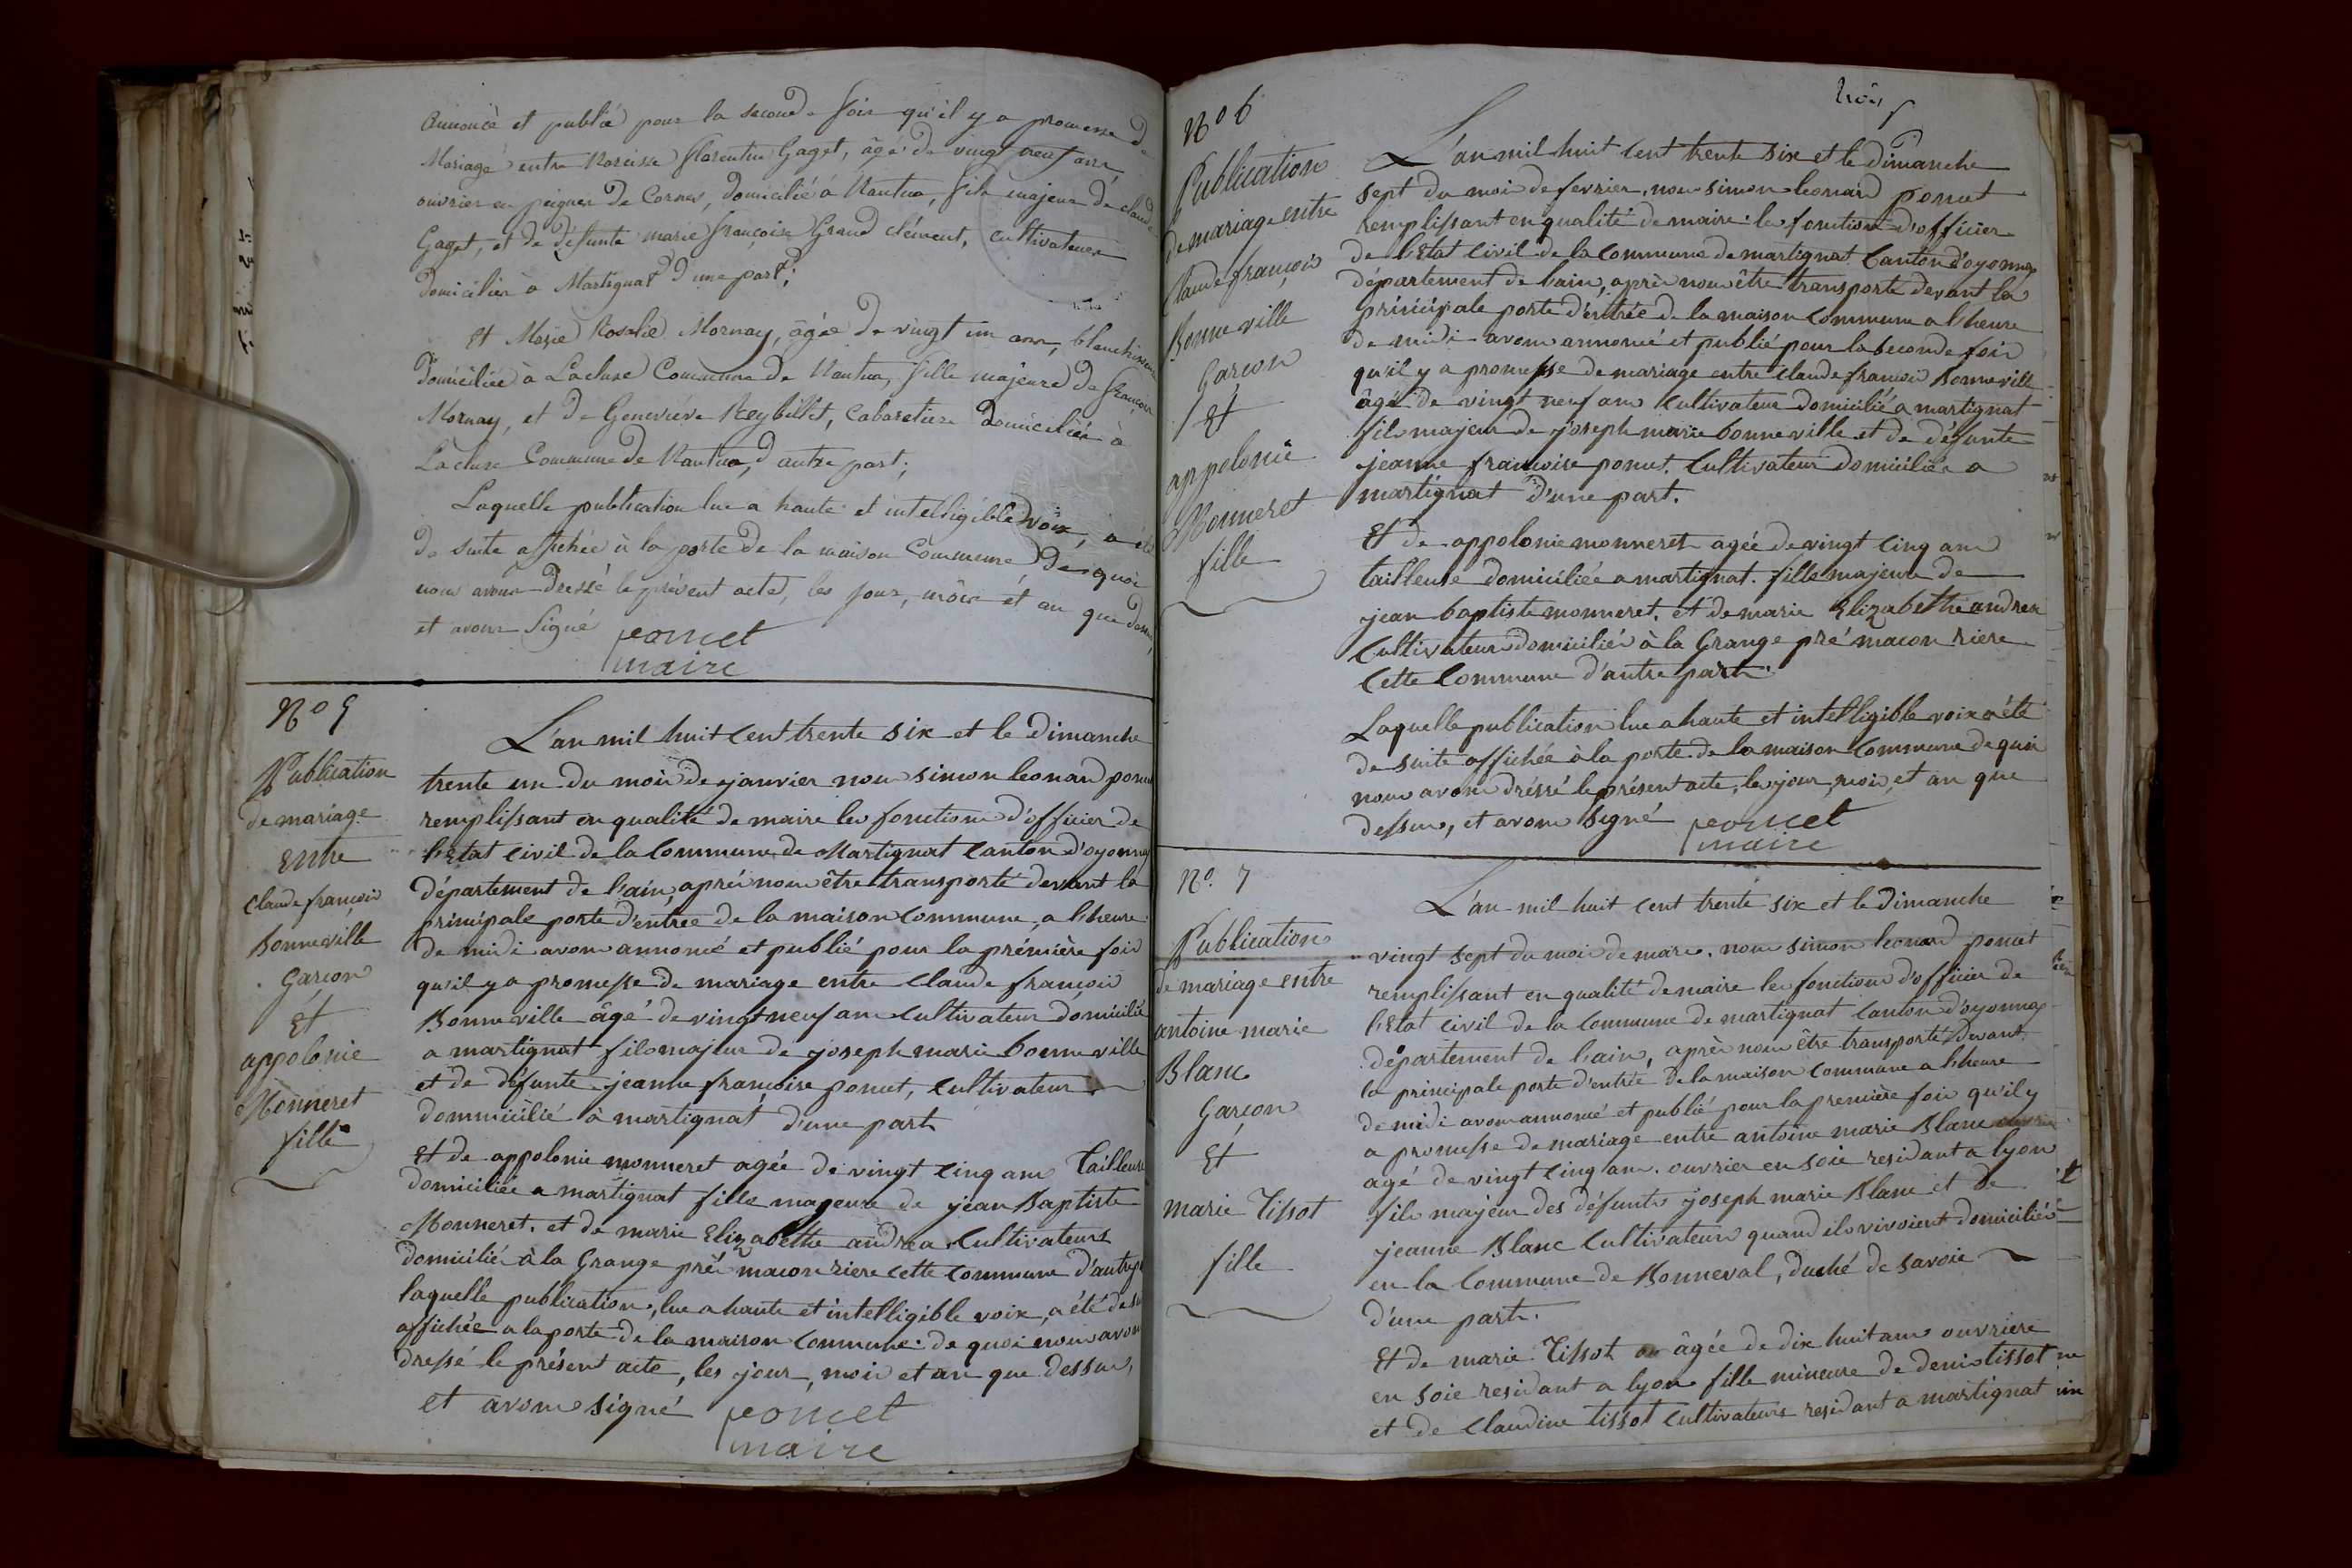 annoncé et publié pour la seconde fois qu'il y a promesse de
Mariage entre Narcisse florentin Gaget, âgé de vingt neuf ans
ouvrier en peignes de Cornes, domicilié à Nantua, fils majeur de claude
Gaget, et de défunte marie françoise Grand clément, cultivateurs
domiciliés à Martignat d'une part;
Et Marie Rosalie Mornay, âgée de vingt un ans, blanchisseuse
domiciliée à Lacluse Commune de Nantua, fille majeure de françois
Mornay, et de Geneviève Reybillet, Cabaretiers domiciliés à
Lacluse Commune de Nantua, d'autre part;
Laquelle publication lue a haute et intelligible voix, a été
de suite affichée à la porte de la maison Commune, de quoi
nous avons dressé le présent acte, les jour, mois et an que dessus,
et avons signé
poncet
maire
N° 5
Publication
de mariage
entre
claude françois
Bonneville
Garçon
Et
appolonie
Monneret
fille
L'an mil huit cent trente six et le dimanche
trente un du mois de janvier nous simon leonard poncet
remplissant en qualité de maire les fonctions d'officier de
l'Etat civil de la Commune de Martignat Canton d'oyonnax
département de l'ain, après nous être transporté devant la
principale porte d'entrée de la maison commune, a l'heure
de midi avons annoncé et publié pour la prémière fois
qu'il y a promesse de mariage entre Claude françois
Bonneville âgé de vingt neuf ans Cultivateur domicilié
a martignat fils majeur de joseph marie bonneville
et de défunte jeanne françoise poncet, cultivateur
dommicilié à martignat d'une part
Et de appolonie monneret agée de vingt cinq ans Tailleuse
domiciliée a martignat fille majeure de jean Baptiste
Monneret. et de marie Elizabethe andrea Cultivateurs
domiciliés à la Grange pré macon riere cette commune d'autre
laquelle publication, lue a haute et intelligible voix, a été de
affichée a la porte de la maison commune. de quoi nous avons
dressé le présent acte, les jour, mois et an que dessus,
et avons signé
poncet
maire
trois
N° 6
Publication
de mariage entre
Claude françois
Bonneville
Garcon
Et
appolonie
Monneret
fille
L'an mil huit cent trente six et le dimanche
sept du mois de fevrier. nous simon leonard poncet
remplissant en qualité de maire les fonctions d'officier
de l'Etat civil de la Commune de martignat Canton d'oyonnax
département de l'ain, après nous être transporté devant la
principale porte d'entrée de la maison Commune a l'heure
de midi avons annoncé et publié pour la seconde fois
qu'il y a promesse de mariage entre claude françois Bonneville
âgé de vingt neuf ans Cultivateur domicilié a martignat
fils majeur de joseph marie bonneville et de défunte
jeanne françoise poncet. Cultivateur domiciliés a
martignat d'une part.
Et de appolonie monneret agée de vingt cinq ans
tailleuse domiciliée a martignat. fille majeure de
jean baptiste monneret. et de marie Elizabethe andrea
Cultivateurs domiciliés à la Grange pré macon riere
cette Commune d'autre part.
Laquelle publication lue a haute et intelligible voix a été
de suite affichée à la porte de la maison commune de quoi
nous avons dréssé le présent acte, les jour, mois, et an que
dessus, et avons signé
poncet
maire
N°. 7
Publication
de mariage entre
antoine marie
Blanc
Garcon
Et
marie Tissot
fille
L'an mil huit cent trente six et le Dimanche
vingt sept du mois de mars. nous simon leonard poncet
remplissant en qualité de maire les fonctions d'officier de
l'Etat civil de la Commune de martignat Canton d'oyonnax
département de l'ain, après nous être transporté devant
la principale porte d'entrée de la maison commune a l'heure
de midi avons annoncé et publié pour la premiere fois qu'il y
a promesse de mariage entre antoine marie Blanc
agé de vingt cinq ans. ouvrier en soie residant a lyon
fils majeur des défunts joseph marie Blanc et de
jeanne Blanc Cultivateurs quand ils vivoient domiciliés
en la Commune de Bonneval, duché de Savoie
d'une part.
Et de marie Tissot âgée de dix huit ans ouvriere
en soie residant a lyon fille mineure de denis tissot
et de Claudine tissot Cultivateurs residant a martignat